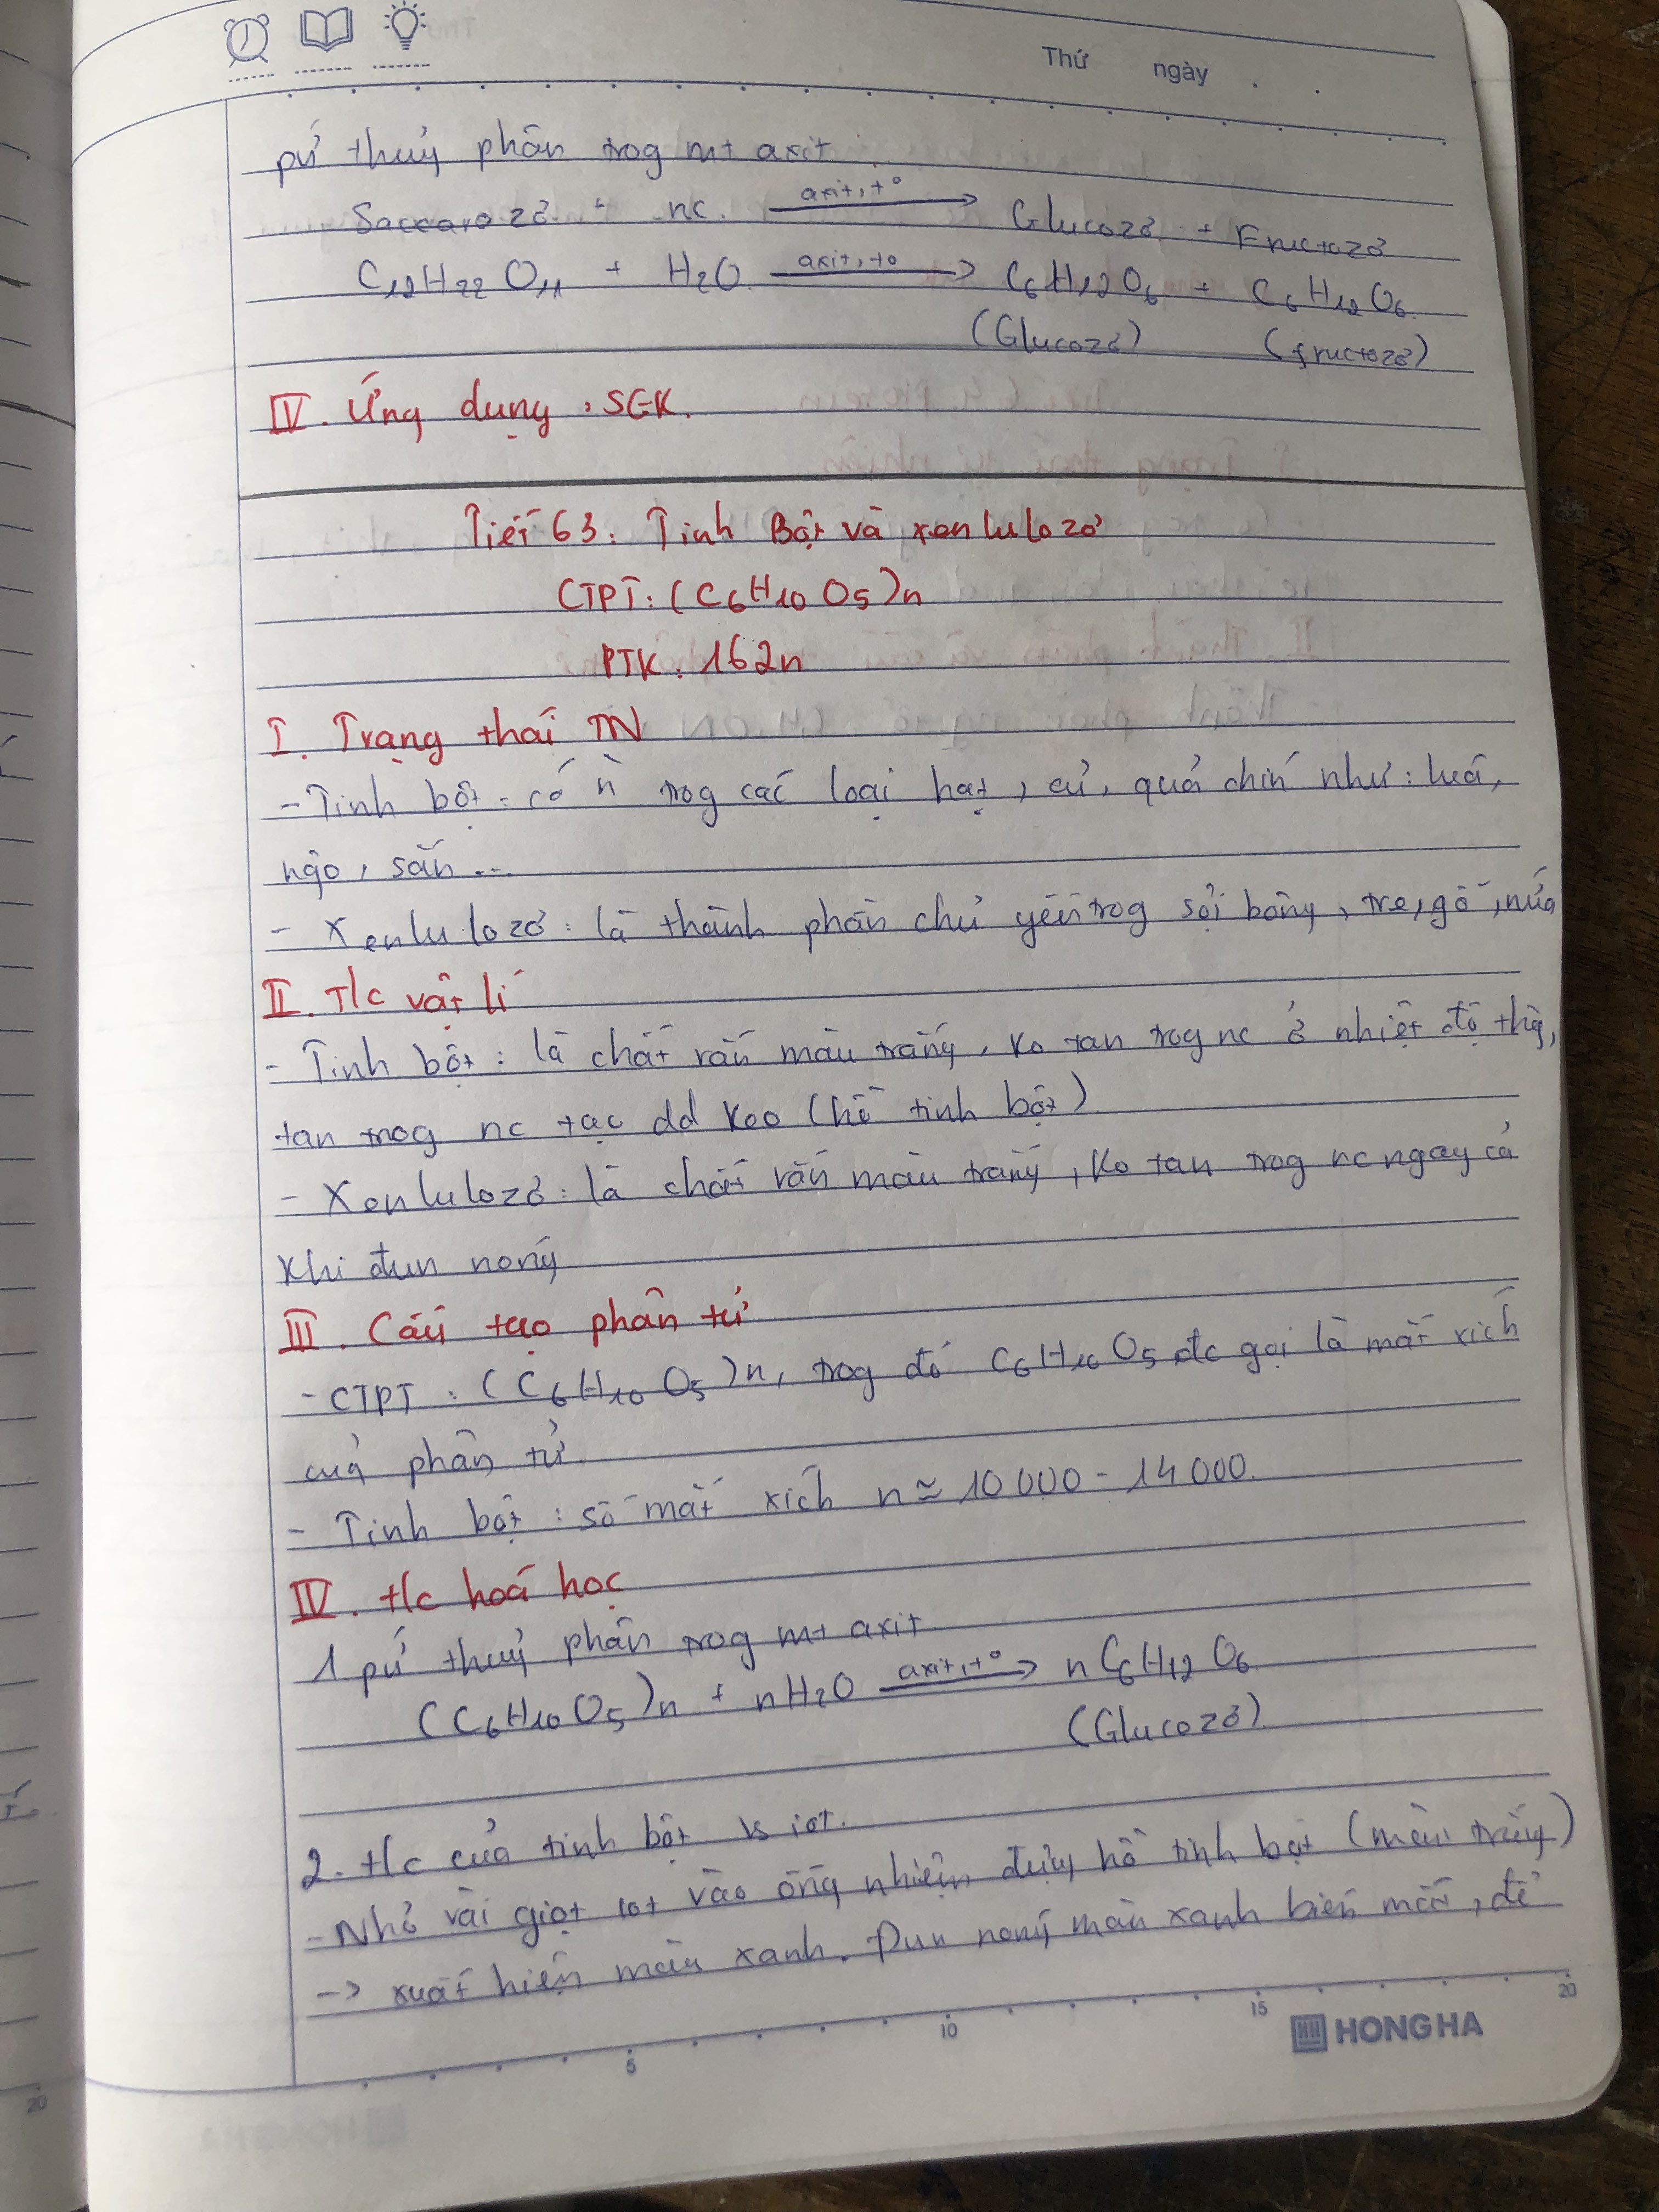 Thứ ngày
pứ thuỷ phân trog mt axit
Saccarozơ + nc axit, t° → Glucozơ + Fructozơ
C12H22O11 + H2O axit, to → C6H12O6 + C6H12O6
(Glucozơ) (fructozơ)
IV. Ứng dụng : SGK.
Tiết 63: Tinh Bột và xenlulozơ
CTPT: (C6H10O5)n
PTK: 162n
I. Trạng thái TN
- Tinh bột: có n̄ trog các loại hạt, củ, quả chín như: luá,
ngô, sắn...
- Xenlulozơ: là thành phần chủ yếu trog sợi bông, tre, gỗ, nứa
II. T/c vật lí
- Tinh bột: là chất rắn màu trắng, ko tan trog nc ở nhiệt độ thg,
tan trog nc tạo dd keo (hồ tinh bột)
- Xenlulozơ: là chất rắn màu trắng, ko tan trog nc ngay cả
khi đun nóng
III. Cấu tạo phân tử
- CTPT: (C6H10O5)n, trog đó C6H10O5 đc gọi là mắt xích
của phân tử
- Tinh bột: số mắt xích n ≈ 10000 - 14000
IV. t/c hoá học
1 pứ thuỷ phân trog mt axit
(C6H10O5)n + nH2O axit, t° → nC6H12O6
(Glucozơ)
2. t/c của tinh bột vs iot.
- Nhỏ vài giọt iot vào ống nhiệm đựng hồ tinh bột (màu trắng)
-> xuất hiện màu xanh. Đun nóng màu xanh biến mất, để
5 10 15 20
HONG HA
20